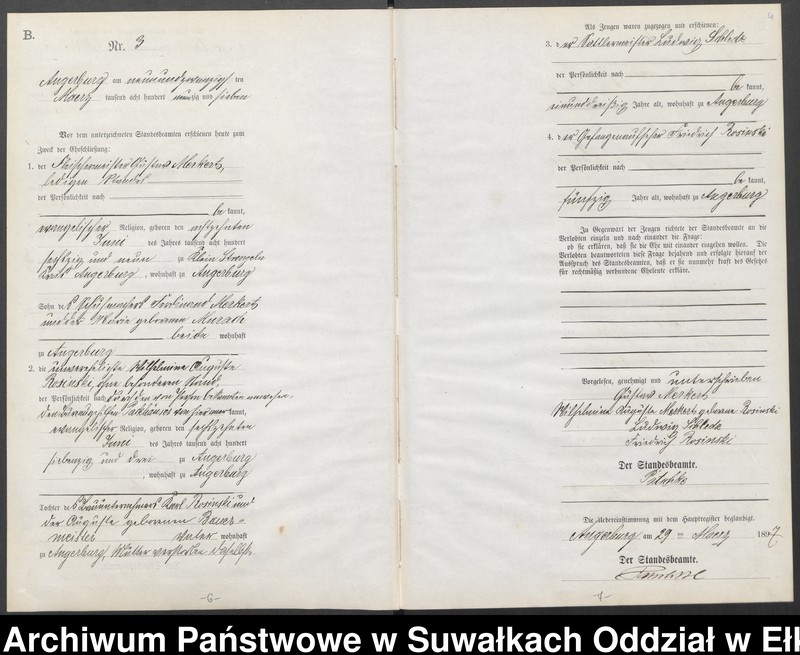 B.
Nr. 3
Angerburg am neunundzwanzigsten
Maerz tausend acht hundert neunzig und sieben
Vor dem unterzeichneten Standesbeamten erschienen heute zum
Zweck der Eheschließung:
1. der Fleischermeister Gustav Merkert,
ledigen Standes
der Persönlichkeit nach
be kannt,
evangelischer Religion, geboren den achtzehnten
Juni des Jahres tausend acht hundert
sechzig und neun zu Klein Strengeln
Kreis Angerburg, wohnhaft zu Angerburg
Sohn des Ferdinand Merkert
und der Marie geborenen
beide wohnhaft
zu Angerburg
2. die unverehelichte Wilhelmine Auguste
Rosinski, ohne besonderen Stand,
der Persönlichkeit nach durch den von Person bekannten anwesen-
den von hier aner kannt,
evangelischer Religion, geboren den sechszehnten
Juni des Jahres tausend acht hundert
siebenzig und drei zu Angerburg
, wohnhaft zu Angerburg
Tochter des Bauunternehmers Karl Rosinski und
der Auguste geborenen Bauer-
meister Vater wohnhaft
zu Angerburg, Mutter verstorben daselbst.
-6-
4
Als Zeugen waren zugezogen und erschienen:
3. der Sattlermeister Ludwig Schleda
der Persönlichkeit nach
be kannt,
einunddreißig Jahre alt, wohnhaft zu Angerburg
4. der Gefangenaufseher Friedrich Rosinski
der Persönlichkeit nach
be kannt,
fünfzig Jahre alt, wohnhaft zu Angerburg
In Gegenwart der Zeugen richtete der Standesbeamte an die
Verlobten einzeln und nach einander die Frage:
ob sie erklären, daß sie die Ehe mit einander eingehen wollen. Die
Verlobten beantworteten diese Frage bejahend und erfolgte hierauf der
Ausspruch des Standesbeamten, daß er sie nunmehr kraft des Gesetzes
für rechtmäßig verbundene Eheleute erkläre.
Vorgelesen, genehmigt und unterschrieben
Gustav Merkert
Wilhelmine Auguste Merkert geborene Rosinski
Ludwig Schleda
Friedrich Rosinski
Der Standesbeamte.
Die Uebereinstimmung mit dem Hauptregister beglaubigt.
Angerburg am 29 ten Maerz 1897
Der Standesbeamte.
-7-
Archiwum Państwowe w Suwałkach Oddział w Ełk